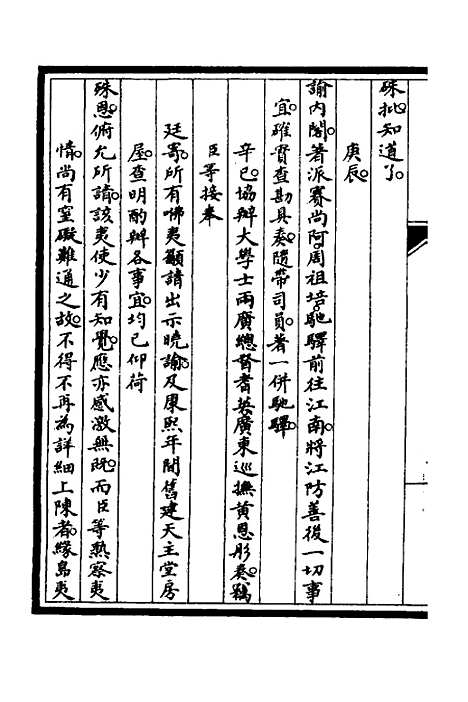 硃批。知道了。
庚辰。
諭內閣。著派賽尚阿。周祖培。馳驛前往江南。將江防善後一切事
宜。確實查勘具奏。隨帶司員。著一併馳驛。
辛巳。協辦大學士兩廣總督耆英。廣東巡撫黃恩彤奏。竊
臣等接奉
廷寄。所有咈夷顧請出示曉諭。及康熙年間舊建天主堂房
屋。查明酌辦各事宜。均已仰荷
硃恩。俯允所請。該夷使少有知覺。應亦感激無既。而臣等熟察夷
情。尚有窒礙難通之故。不得不再為詳細上陳者。緣島夷